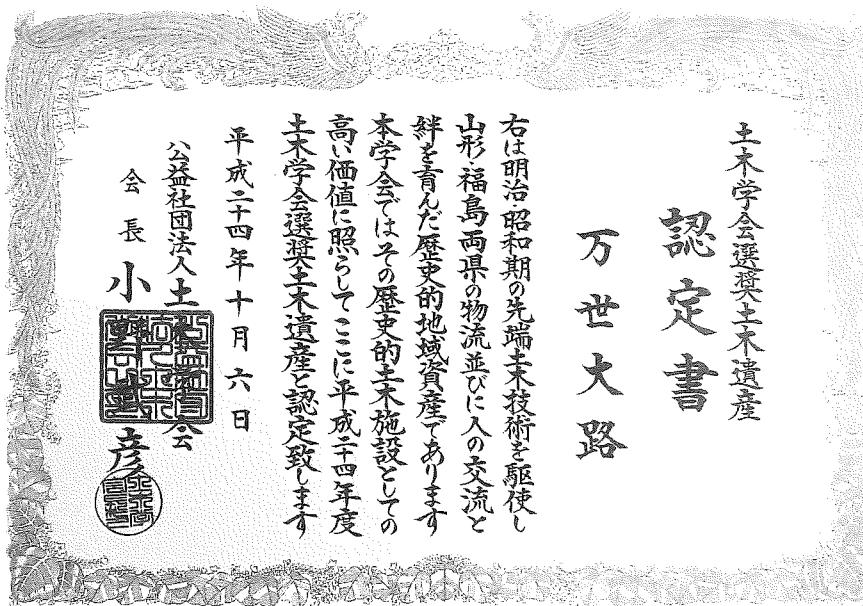 土木学会選奨土木遺産
認定書
万世大路
右は明治・昭和期の先端土木技術を駆使し
山形・福島両県の物流並びに人の交流と
絆を育んだ歴史的地域資産であります
本学会ではその歴史的土木施設としての
高い価値に照らしてここに平成二十四年度
土木学会選奨土木遺産と認定致します
平成二十四年十月六日
公益社団法人土 会
会長 小 彦